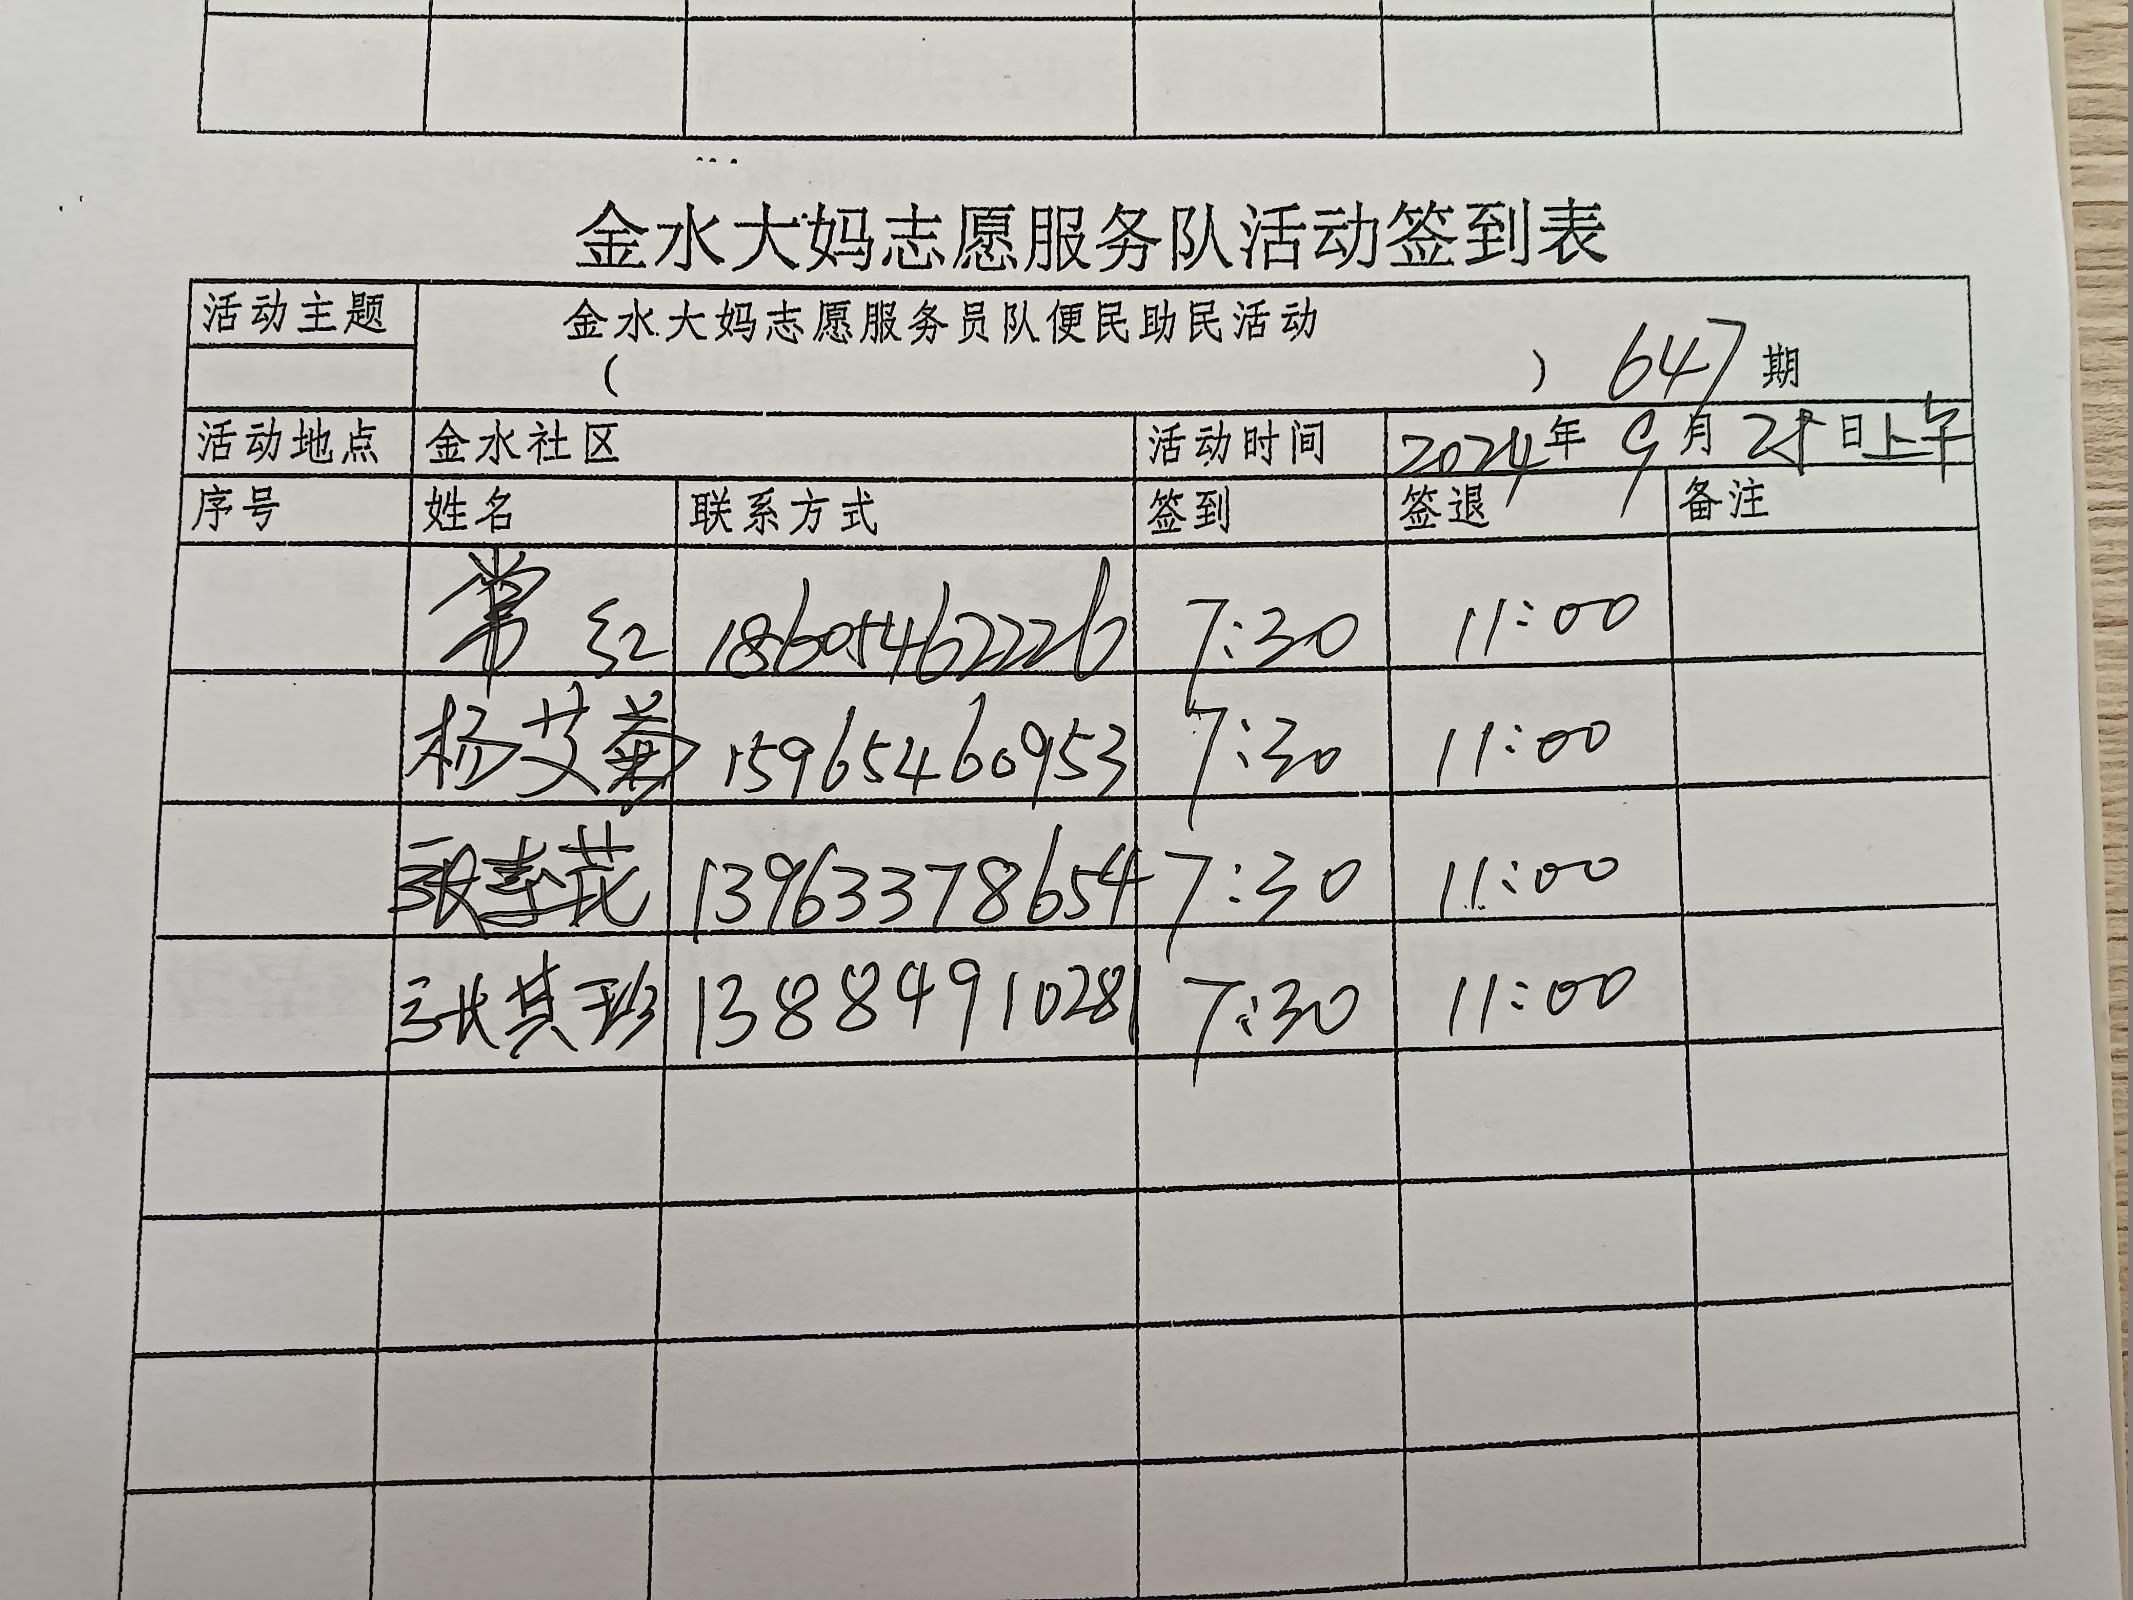 金水大妈志愿服务队活动签到表
活动主题 金水大妈志愿服务员队便民助民活动
( ) 647期
活动地点 金水社区 活动时间 2024年9月25日上午
序号 姓名 联系方式 签到 签退 备注
常红 18605462226 7:30 11:00
杨艾菊 15965460953 7:30 11:00
13963378654 7:30 11:00
张其珍 13884910281 7:30 11:00